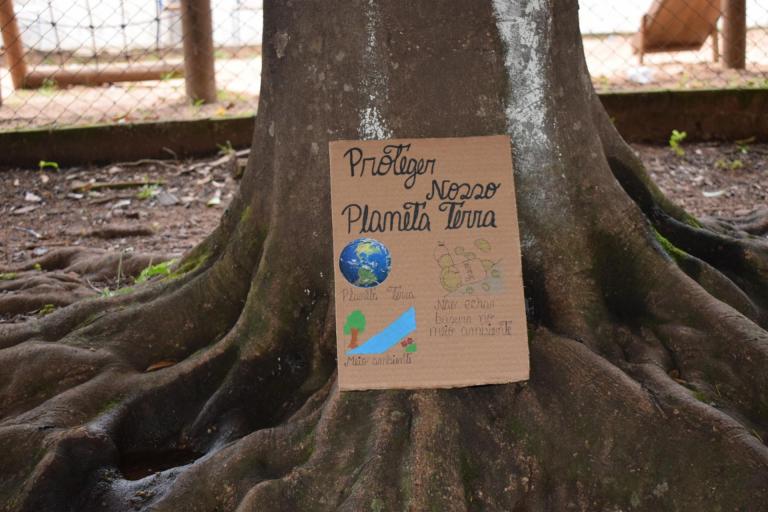 Proteger
Nosso
Planeta Terra
Planeta Terra
Não echar
basura no
meio ambiente
Meio ambiente